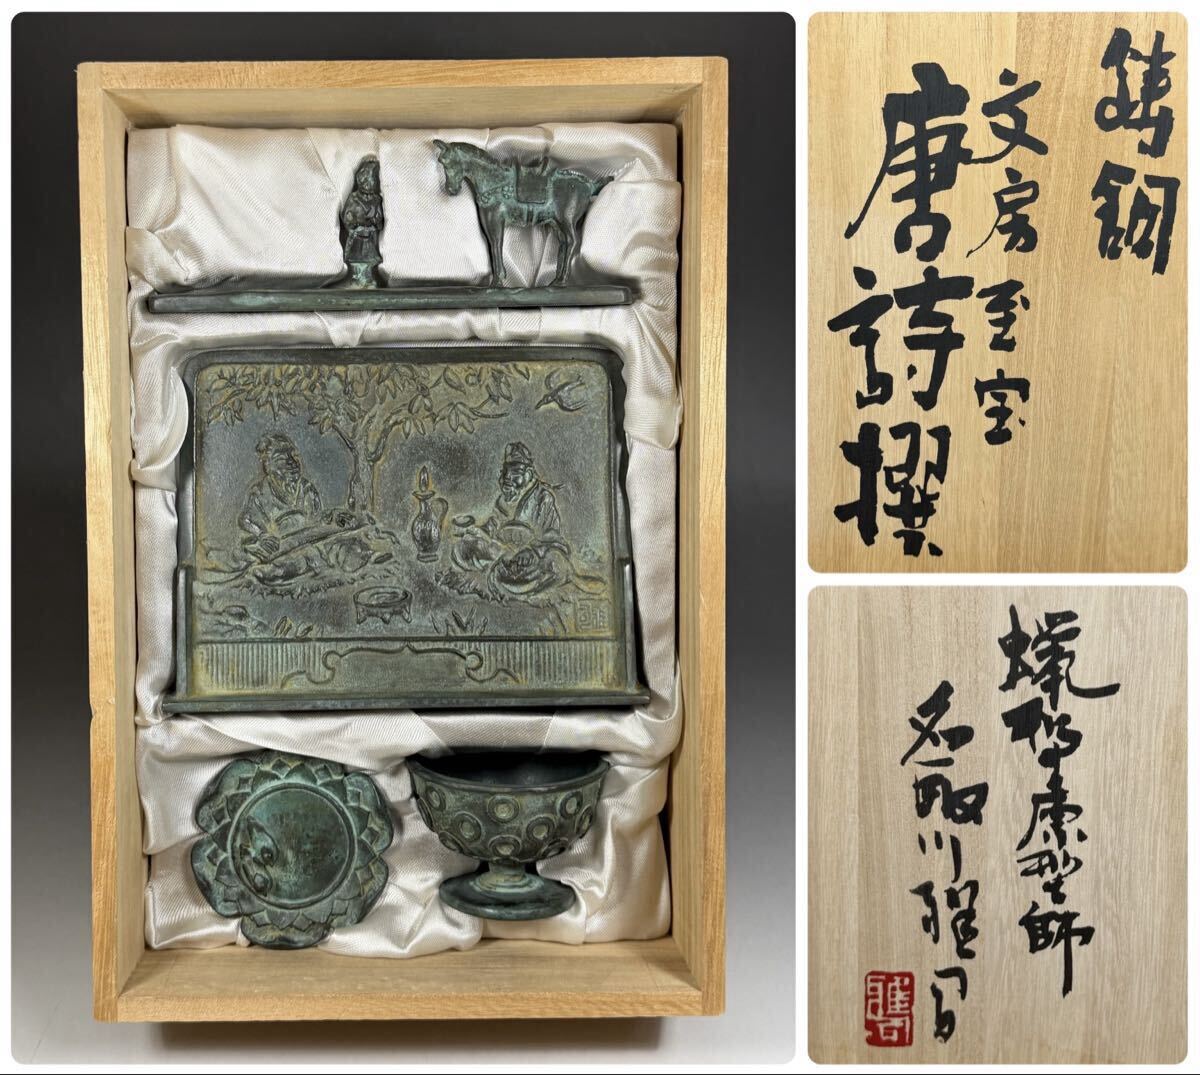 鋳銅
文房至宝
唐詩撰
蝋 原型師
名取川雅司
雅司